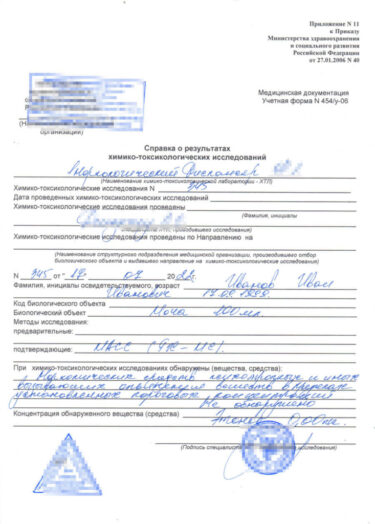 Приложение N 11
к Приказу
Министерства здравоохранения
и социального развития
Российской Федерации
от 27.01.2006 N 40
Медицинская документация
Учетная форма N 454/у-06
организации)
Справка о результатах
химико-токсикологических исследований
Наркологический диспансер
(Наименование химико-токсикологической лаборатории - ХТЛ)
Химико-токсикологические исследования N 345
Дата проведенных химико-токсикологических исследований
Химико-токсикологические исследования проведены
(Фамилия, инициалы
специалиста ХТЛ, проводившего исследования)
Химико-токсикологические исследования проведены по Направлению на
(Наименование структурного подразделения медицинской организации, производившего отбор
биологического объекта и выдавшего направление на химико-токсикологические исследование)
N 345 от "12" 07 2022г.
Фамилия, инициалы освидетельствуемого, возраст Иванов Иван
Иванович 17.09.1998.
Код биологического объекта
Биологический объект Моча 100 мл.
Методы исследования:
предварительные:
подтверждающие: МАСС (ГЖ-МС).
При химико-токсикологических исследованиях обнаружены (вещества, средства):
Наркотических средств психотропных и иных
вызывающих опьянение веществ в пределах
установленной пороговых концентраций
Не обнаружено
Концентрация обнаруженного вещества (средства) Этанол 0,00
(Подпись специалиста